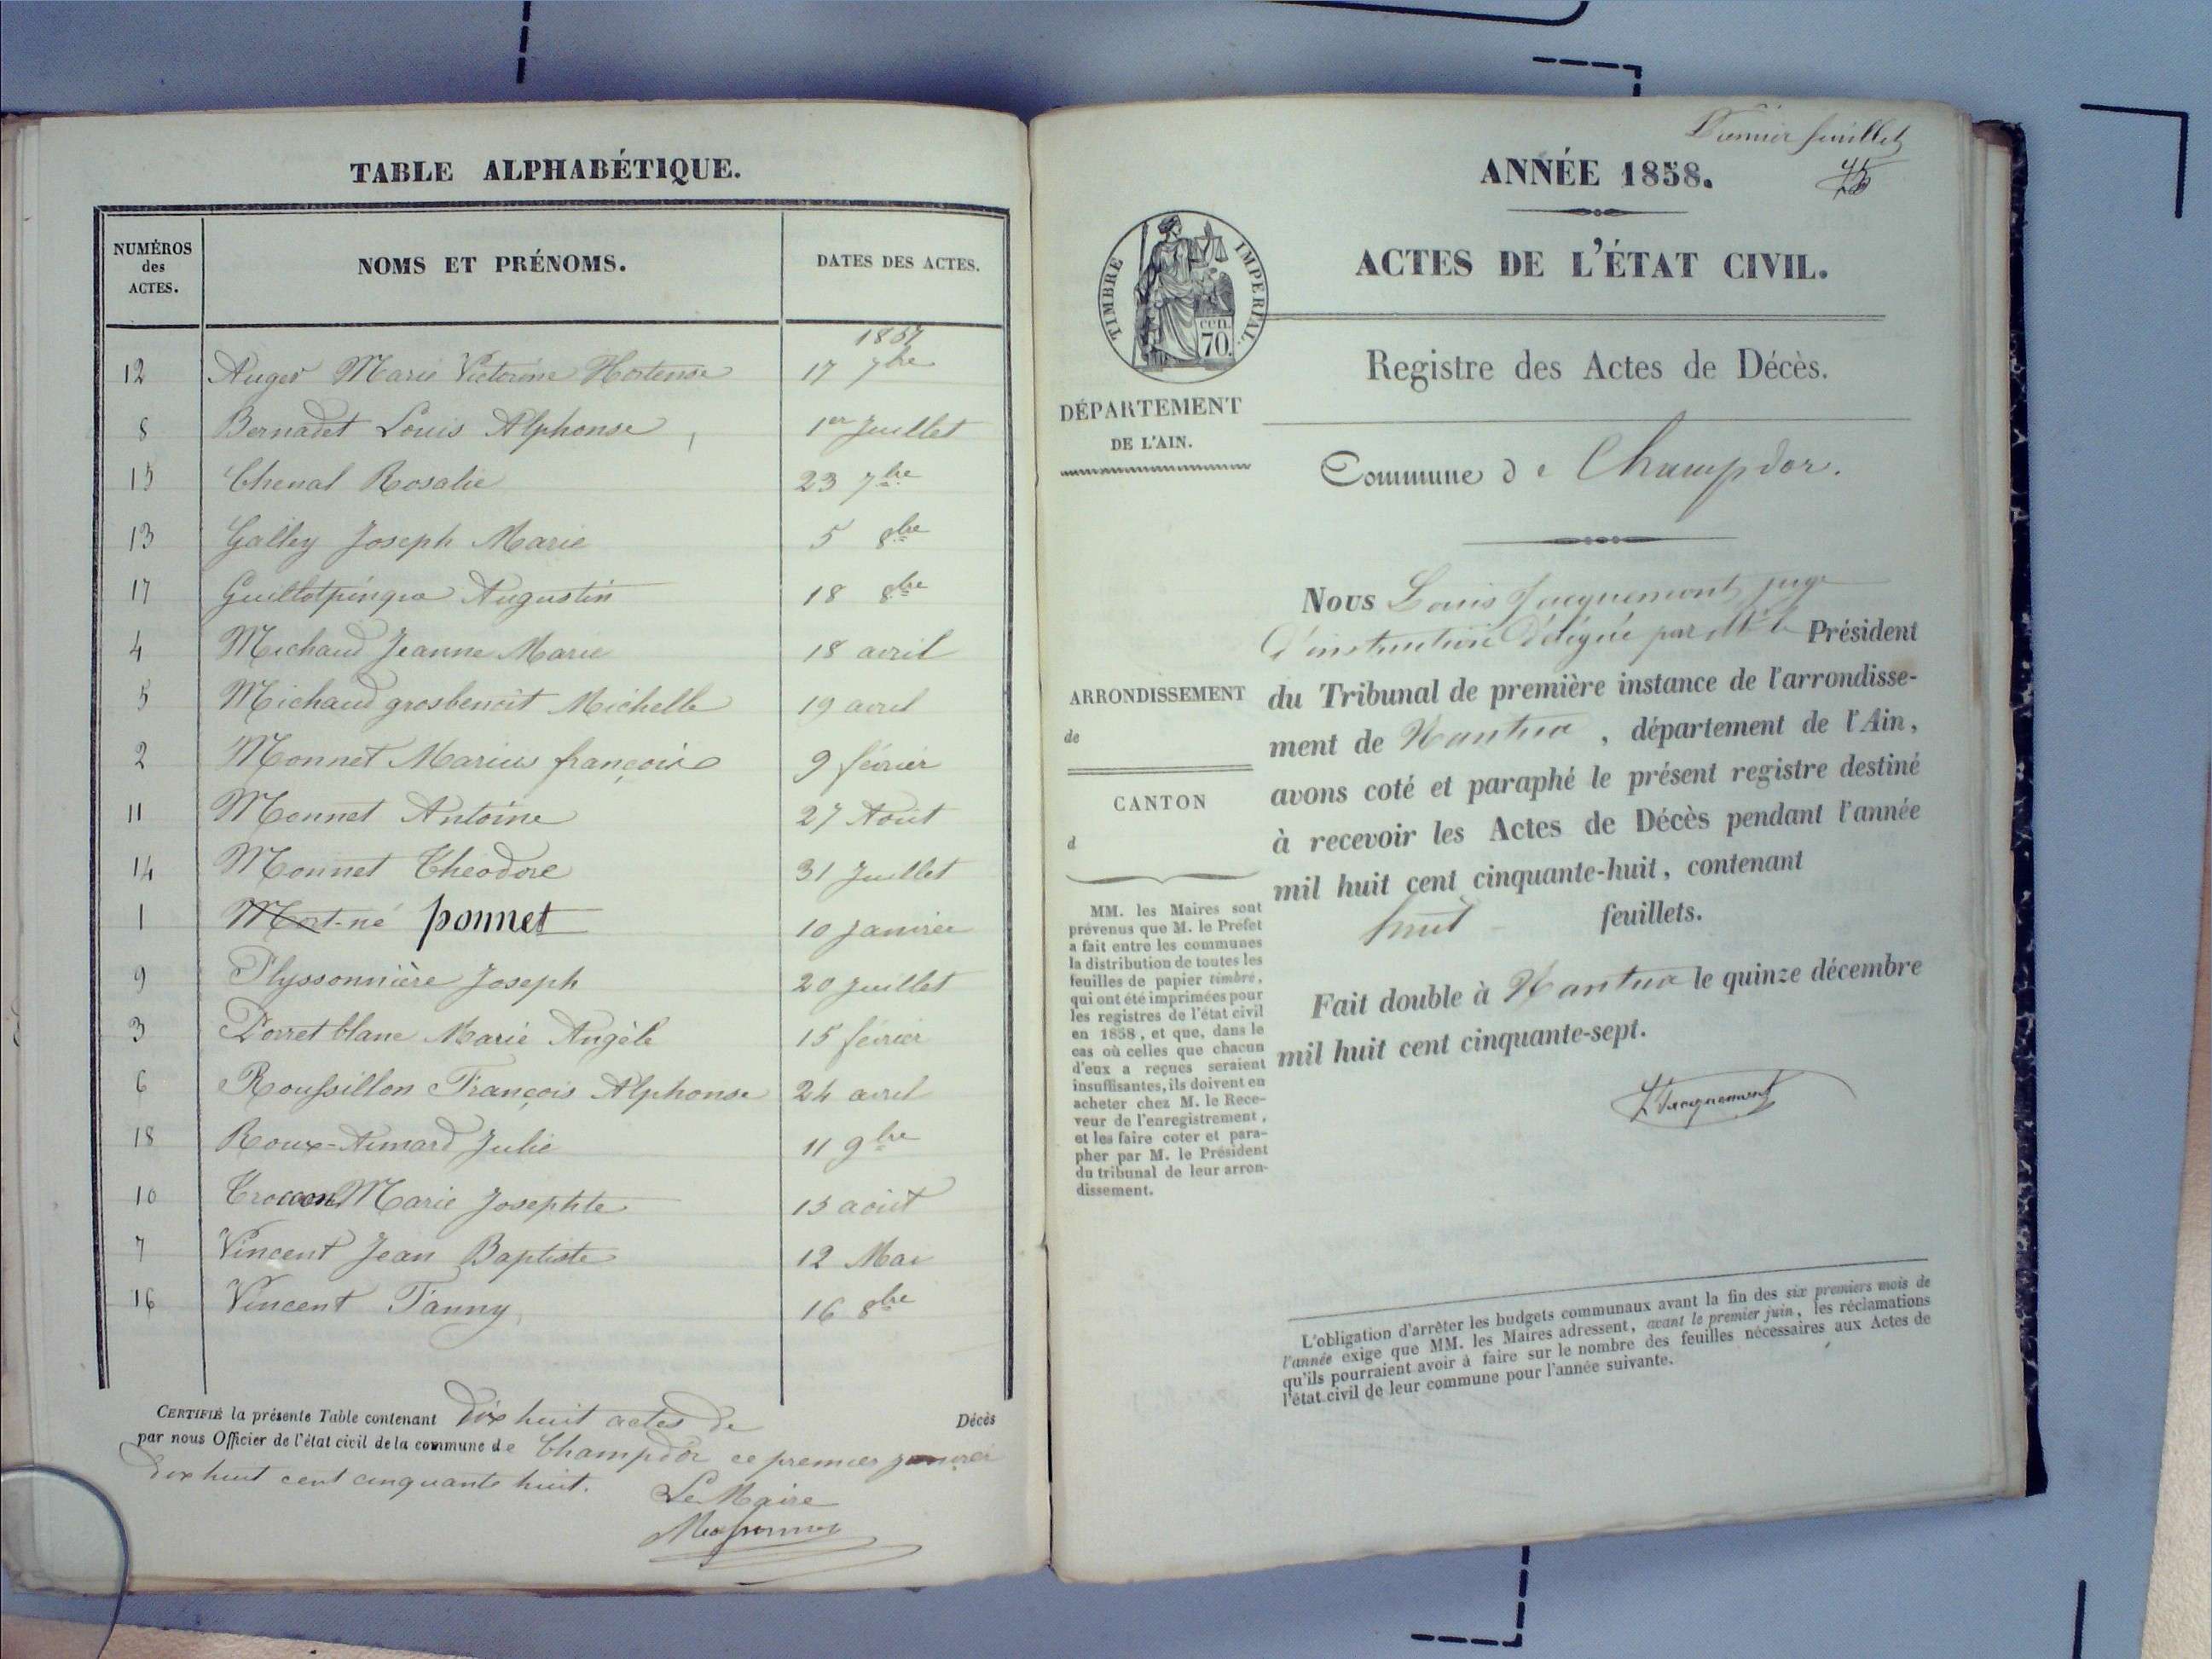 TABLE ALPHABÉTIQUE.
NUMÉROS des ACTES. NOMS ET PRÉNOMS. DATES DES ACTES.
1857
12 Auger Marie Victorine Hortense 17 7bre
8 Bernadet Louis Alphonse 1er Juillet
15 Chenal Rosalie 23 7bre
13 Galley Joseph Marie 5 8bre
17 Guillotpingue Augustin 18 8bre
4 Michaud Jeanne Marie 18 avril
5 Michaud grosbenoit Michelle 19 avril
2 Monnet Marius françois 9 février
11 Monnet Antoine 27 Août
14 Monnet Théodore 31 Juillet
1 Mort-né ponnet 10 Janvier
9 Plyssonnière Joseph 20 Juillet
3 Porret blanc Marie Angèle 15 février
6 Roussillon François Alphonse 24 avril
18 Roux-Aimard Julie 11 9bre
10 Marie Josephte 13 août
7 Vincent Jean Baptiste 12 Mai
16 Vincent Fanny 16 8bre
CERTIFIÉ la présente Table contenant dix huit actes de Décès
par nous Officier de l'état civil de la commune de Champdor ce premier janvier
dix huit cent cinquante huit.
Le Maire
Premier feuillet
ANNÉE 1858.
ACTES DE L'ÉTAT CIVIL.
TIMBRE IMPERIAL.
cen.
70.
Registre des Actes de Décès.
DÉPARTEMENT
DE L'AIN.
Commune de Champdor.
Nous Louis Jacquemont, juge
d'instruction délégué par Mr le Président
du Tribunal de première instance de l'arrondisse-
ment de Nantua, département de l'Ain,
avons coté et paraphé le présent registre destiné
à recevoir les Actes de Décès pendant l'année
mil huit cent cinquante-huit, contenant
huit feuillets.
Fait double à Nantua le quinze décembre
mil huit cent cinquante-sept.
L Jacquemont
ARRONDISSEMENT
de
CANTON
d
MM. les Maires sont
prévenus que M. le Préfet
a fait entre les communes
la distribution de toutes les
feuilles de papier timbré,
qui ont été imprimées pour
les registres de l'état civil
en 1858, et que, dans le
cas où celles que chacun
d'eux a reçues seraient
insuffisantes, ils doivent en
acheter chez M. le Rece-
veur de l'enregistrement,
et les faire coter et para-
pher par M. le Président
du tribunal de leur arron-
dissement.
L'obligation d'arrêter les budgets communaux avant la fin des six premiers mois de
l'année exige que MM. les Maires adressent, avant le premier juin, les réclamations
qu'ils pourraient avoir à faire sur le nombre des feuilles nécessaires aux Actes de
l'état civil de leur commune pour l'année suivante.